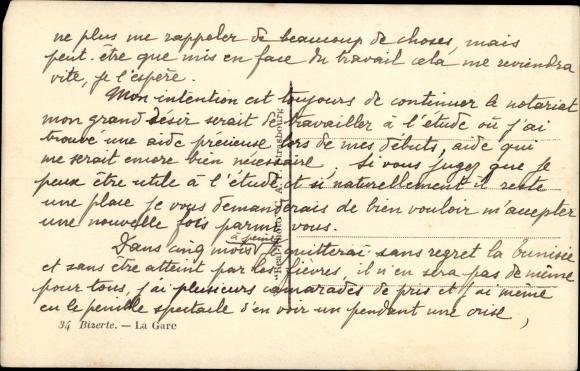 ne plus me rappeler de beaucoup de choses, mais
peut-être que mis en face du travail cela me reviendra
vite, je l'espère.
Mon intention est toujours de continuer le notariat
mon grand désir serait de travailler à l'étude où j'ai
trouvé une aide précieuse lors de mes débuts, aide qui
me serait encore bien nécessaire. Si vous jugez que je
peux être utile à l'étude, et si naturellement il reste
une place je vous demanderais de bien vouloir m'accepter
une nouvelle fois parmi vous.
à peine
Dans cinq mois je quitterai sans regret la Tunisie
et sans être atteint par les fièvres, il n'en sera pas de même
pour tous, j'ai plusieurs camarades de pris et j'ai même
eu le pénible spectacle d'en voir un pendant une crise,
34 Bizerte. — La Gare
Strasbourg